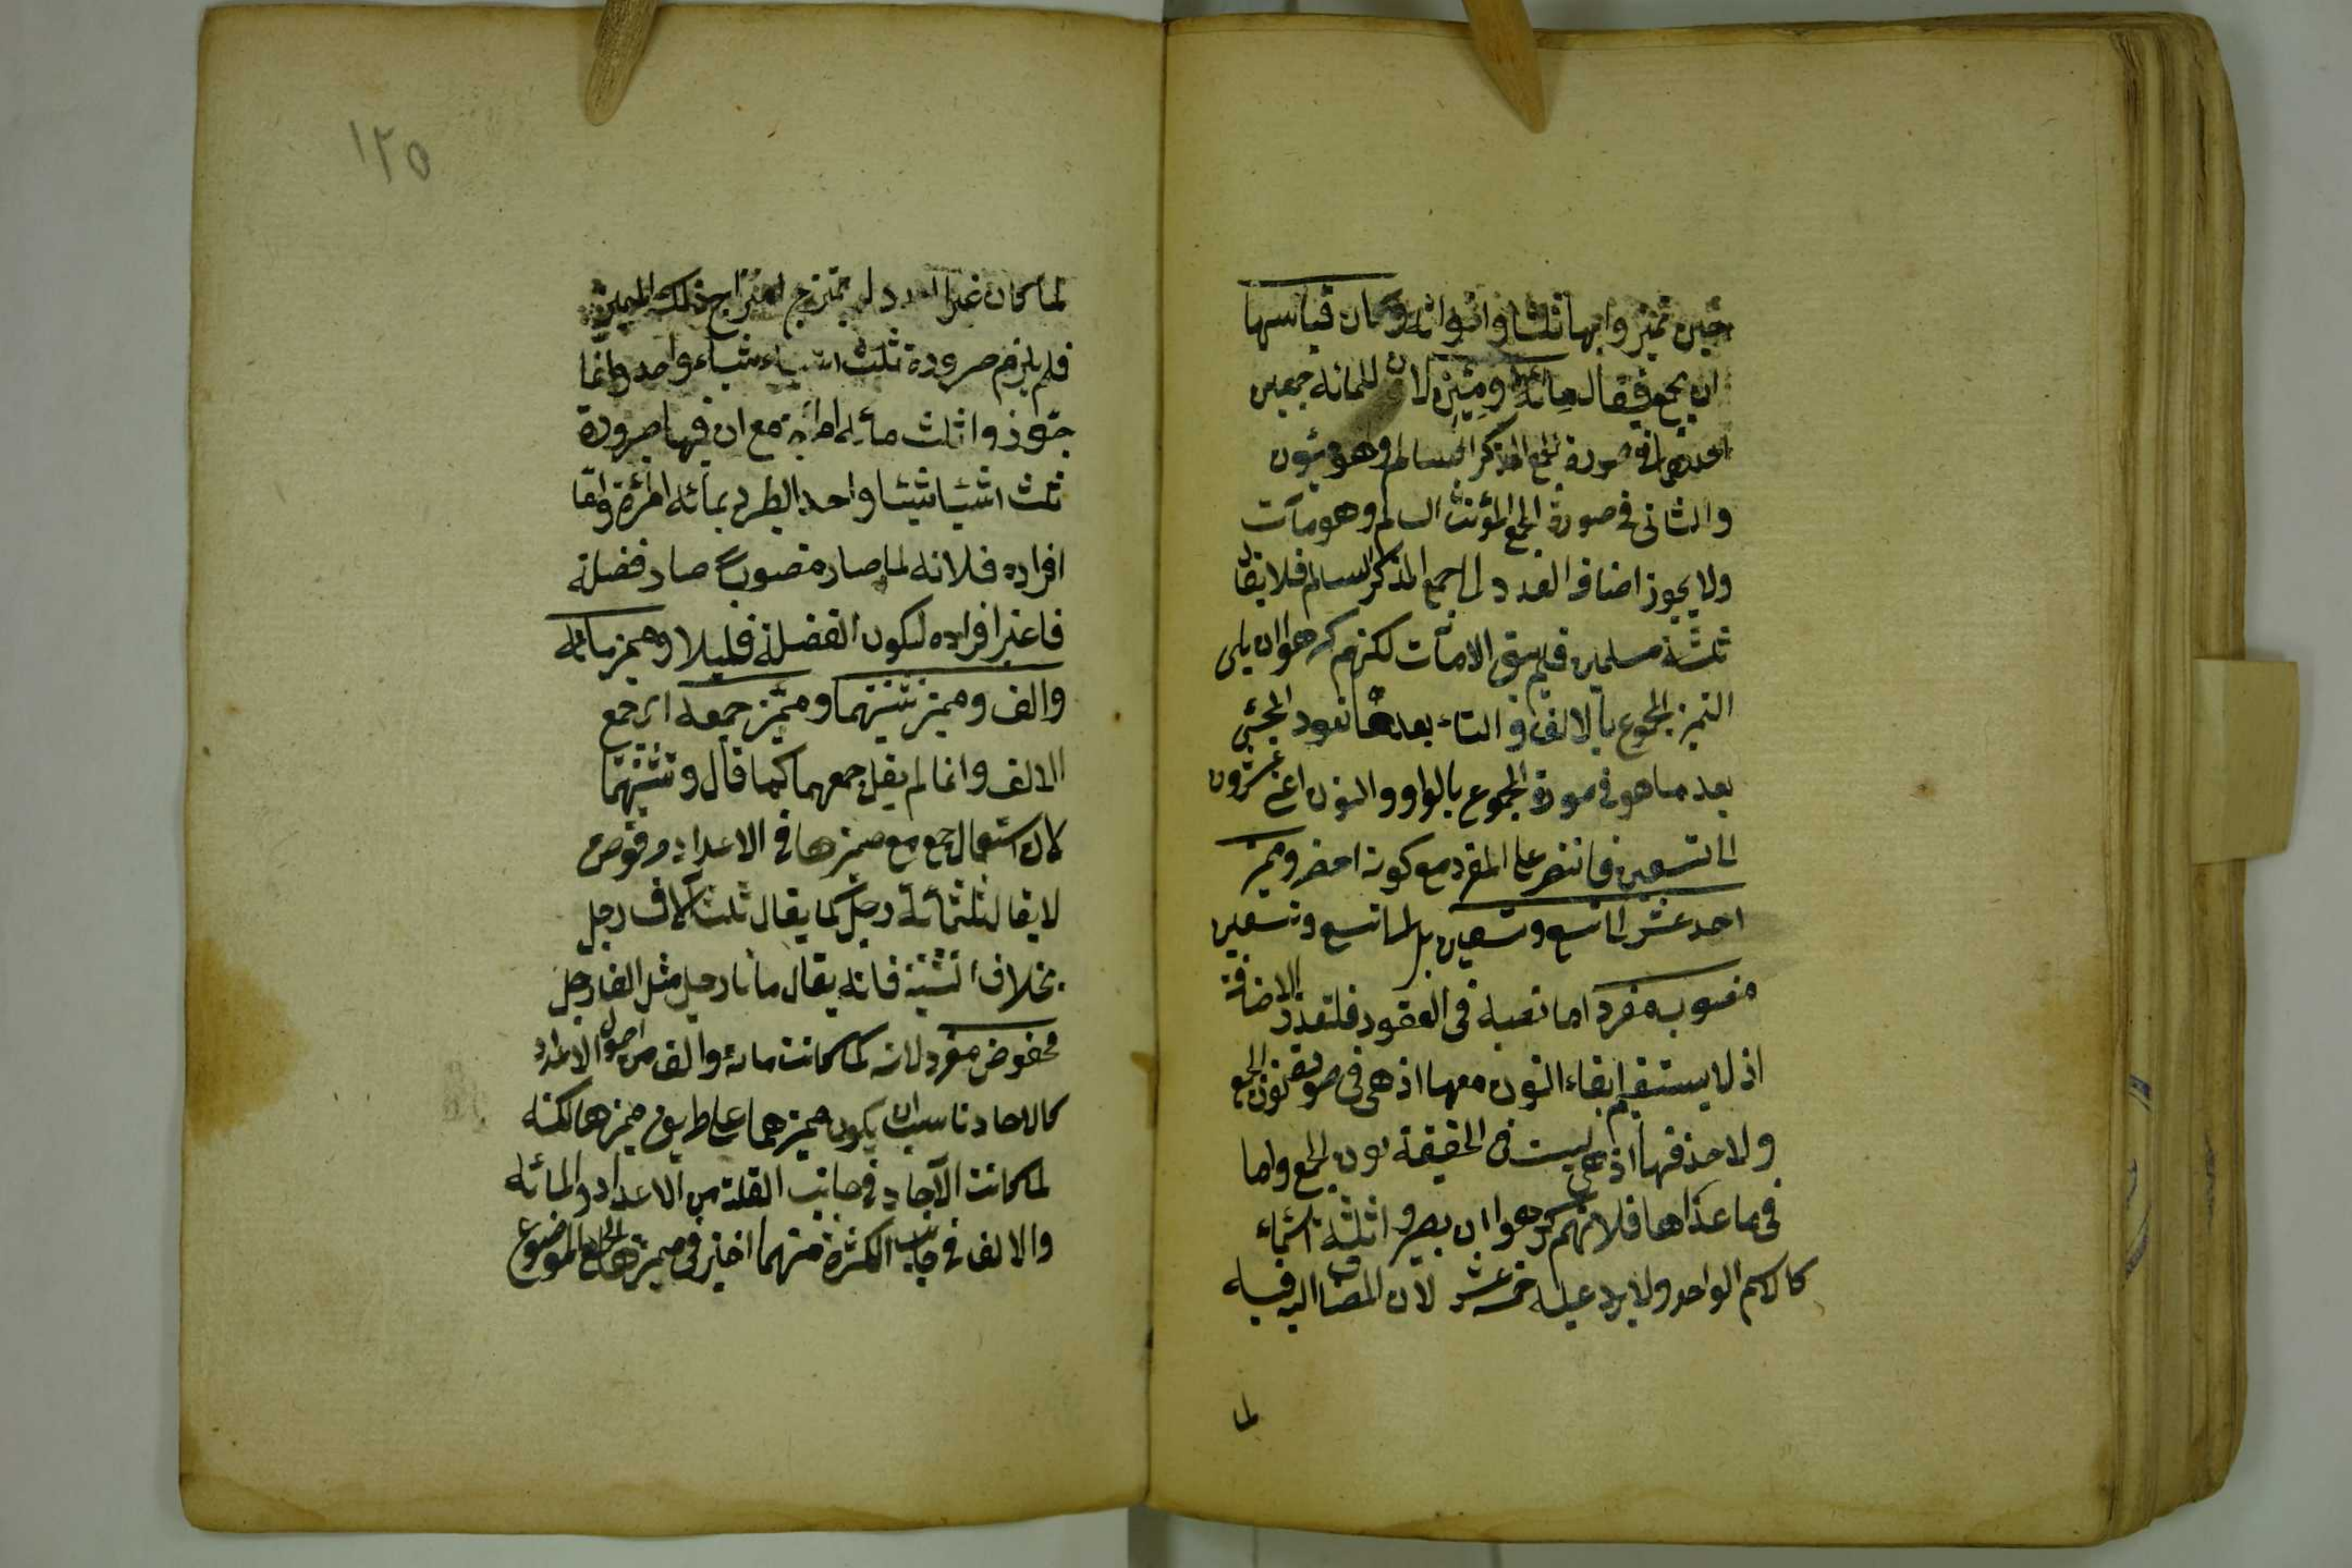 حين ميزوا بها ثلثا واخواته وكان قياسها
ان يجمع فيقال مائة ومئين لان للمائة جمعين
احدهما في صورة الجمع المذكر السالم وهو مئون
والثاني في صورة الجمع المؤنث السالم وهو مآت
ولا يجوز اضافة العدد الى الجمع المذكر السالم فلا يقال
ثلثة مسلمين فلم يبق الا مآت لكنهم كرهوا ان يلي
التميز المجموع بالالف والتاء بعدها تعود المجئ
بعد ما هو في صورة المجموع بالواو والنون اعني عشرون
الى تسعين فاقتصر على المفرد مع كونه اخصر ومميز
احد عشر الى تسع وتسعين بل الى تسع وتسعين
منصوب مفرد اما نصبه في العقود فلتعذر الاضافة
اذ لا يستقيم ابقاء النون معها اذ هي في صورة نون الجمع
ولا حذفها اذ هي ليست في الحقيقة نون الجمع واما
في ما عداها فلانهم كرهوا ان يصيروا ثلثة اشياء
كالاسم الواحد ولا يرد عليه خمسة عشر لان المضاف اليه فيه
لما
١٢٥
لما كان غير العدد لم يمتزج امتزاج ذلك المميز
فلم يلزم صرورة ثلث اشياء شياء واحدا وانما
جوزوا ثلث مائة امرأة مع ان فيها صرورة
ثلث اشيئا شيئا واحد الطرد بمائة امرأة واما
افراده فلانه لما صار منصوبا صار فضلة
فاعتبر افراده ليكون الفضلة قليلا ومميز مائة
والف ومميز تثنيتهما ومميز جمعه اي جمع
الالف وانما لم يقل جمعهما كما قال وتثنيتهما
لان استعمال جمع مع مميزها في الاعداد مرفوض
لا يقال ثلثمائة رجل كما يقال ثلث آلاف رجل
بخلاف التثنية فانه يقال مائتا رجل مثل الفا رجل
مخفوض مفرد لانه لما كانت مائة والف من اصول الاعداد
كالاحاد ناسب ان يكون مميزهما على طريق مميزها لكنه
لما كانت الآحاد في جانب القلة من الاعداد والمائة
والالف في جانب الكثرة منهما اختير في مميزها الجمع الموضوع